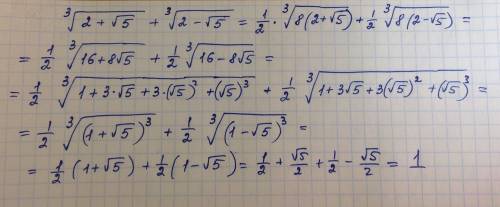 ∛(2+√5) + ∛(2-√5) = 1/2 · ∛(8(2+√5)) + 1/2 ∛(8(2-√5)) =
= 1/2 ∛(16+8√5) + 1/2 ∛(16-8√5) =
= 1/2 ∛(1+3·√5+3·(√5)²+(√5)³) + 1/2 ∛(1+3√5+3(√5)²+(√5)³) =
= 1/2 ∛((1+√5)³) + 1/2 ∛((1-√5)³) =
= 1/2 (1+√5) + 1/2 (1-√5) = 1/2 + √5/2 + 1/2 - √5/2 = 1